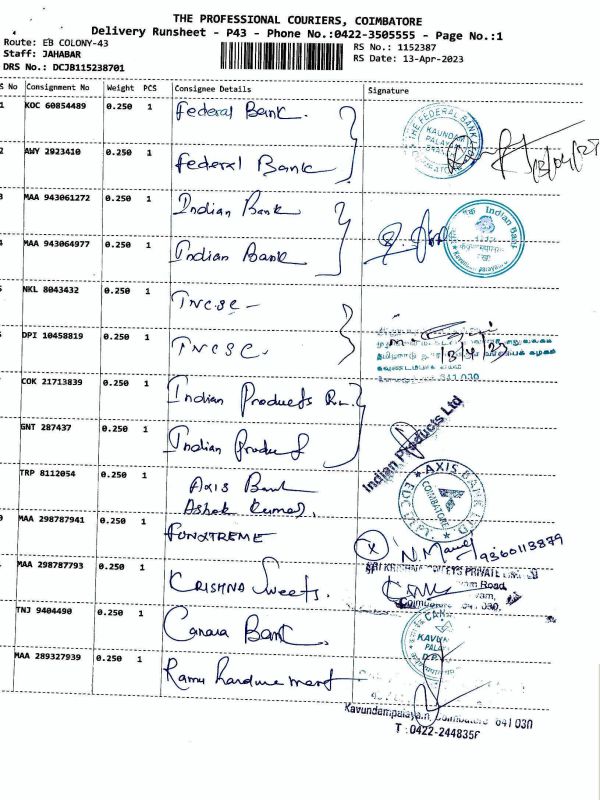 THE PROFESSIONAL COURIERS, COIMBATORE
Delivery Runsheet - P43 - Phone No.:0422-3505555 - Page No.:1
Route: EB COLONY-43
Staff: JAHABAR
DRS No.: DCJB115238701
RS No.: 1152387
RS Date: 13-Apr-2023
S No Consignment No Weight PCS Consignee Details Signature
1 KOC 60854489 0.250 1 Federal Bank.
THE FEDERAL BANK
KAUNDAM
PALAYAM
COIMBATORE
2 AWY 2923410 0.250 1 Federal Bank
13/04/23
3 MAA 943061272 0.250 1 Indian Bank
Indian Bank
4 MAA 943064977 0.250 1 Indian Bank
NKL 8043432 0.250 1 TNCSC -
DPI 10458819 0.250 1 TNCSC.
13/4/23
641 030
COK 21713839 0.250 1 Indian Products
GNT 287437 0.250 1 Indian
Indian Products Ltd
TRP 8112054 0.250 1 Axis Bank
Ashok Kumar.
AXIS BANK LTD
COIMBATORE
MAA 298787941 0.250 1 FONXTREME
9360113879
MAA 298787793 0.250 1 KRISHNA Sweets.
SRI KRISHNA SWEETS PRIVATE LIMITED
Road,
Coimbatore 641 030,
TNJ 9404490 0.250 1 Canara Bank.
MAA 289327939 0.250 1 Ramu hardware mart
Kavundampalayam, Coimbatore 641 030
T : 0422-2448356